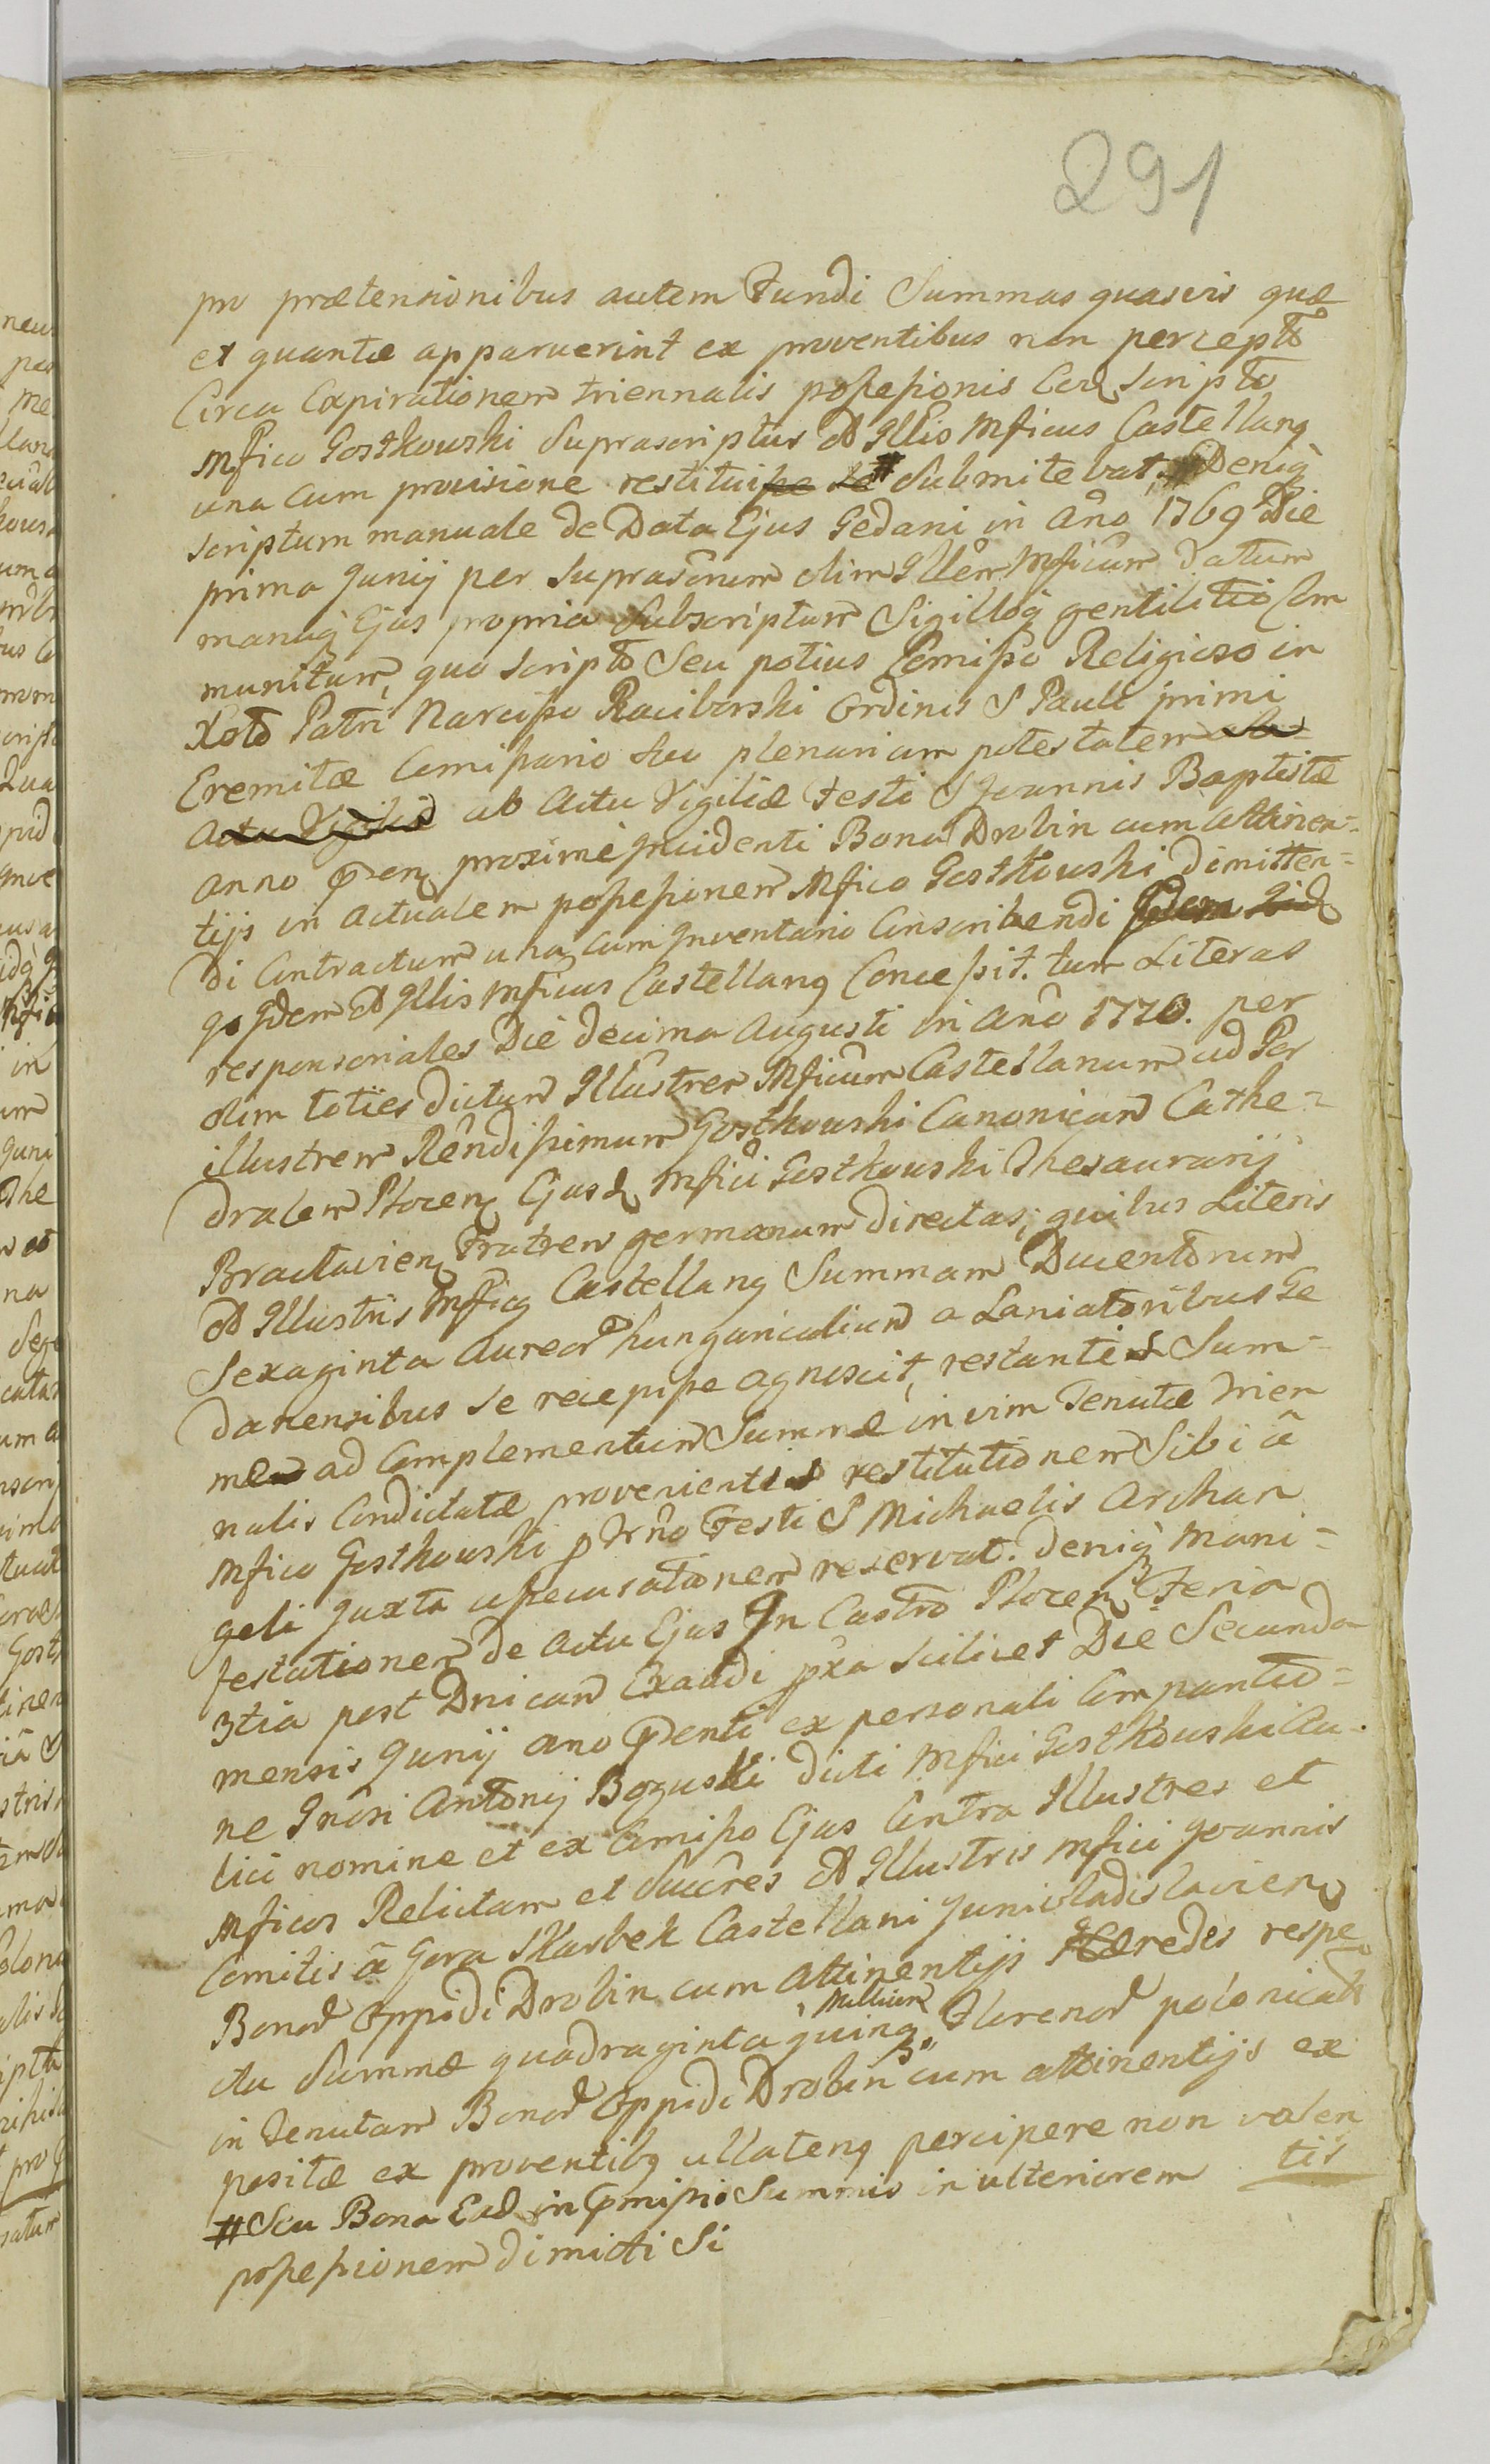 291
pro prætensionibus autem Fundi Summas quasvis quæ
et quantæ apparuerint ex proventibus non percepto
Circa Expirationem triennalis possessionis Cerd scripto
Mfico Gostkowski Suprascriptus et Illis Mficus Castellang
una cum provisione restituisse se # Submitebat. Deniq
scriptum manuale de Data Ejus Gedani in Año 1769 Die
prima Junij per suprascriptum olim Illem Mficum Datum
manuq Ejus propria Subscriptum Sigilloq gentilitio Com
munitum, quo scripto Seu potius Comisso Religioso in
Xsto Patri Narcisso Raciborski Ordinis S Pauli primi
Eremitæ Comissario suo plenariam potestatem
Actu Vigiliæ ab Actu Vigiliæ Festi S Joannis Baptistæ
Anno præn proxime præcidenti Bona Drobin cum attinen=
tijs in actualem possessionem Mfico Gostkowski dimitten=
di Contractum una cum Inventario Conscribendi Idem
qo Idem et Illis Mficus Castellang Concessit. tum Literas
responsoriales Die decima Augusti in Año 1770. per
olim toties dictum Illustrem Mficum Castellanum ad Per
illustrem Rendissimum Gostkowski Canonicum Cathe=
dralem Plocen Ejusd Mfici Gostkowski Thesaurarij
Braclavien Fratrem germanum directas, quibus Literis
et Illustris Mficq Castellang Summam Ducentorum
Sexaginta Aureor hungaricalium a Laniatoribus Ge
danensibus se recepisse agnoscit, restantis Sum=
mæ ad Complementum Summæ in vim Tenutæ trien
nalis Condictatæ provenientis restitutionem Sibi â
Mfico Gostkowski p Trño Festi S Michaelis Archan
geli juxta assecurationem reservat. Deniq Mani=
festationem de Actu Ejus In Castro Plocen Feria
3tia post Dnicam Exaudi pxa scilicet Die Secunda
mensis Junij ano præenti ex personali Comparitio=
ne Gñosi Antonij Boguski dicti Mfici Gostkowski Au=
lici nomine et ex Comisso Ejus Contra Illustres et
Mficos Relictam et Succres et Illustris Mfici Joannis
Comitis â Gora Skarbek Castellani Junivladislavien
Bonor Oppidi Drobin cum Attinentijs Hæredis respe
ctu Summæ quadraginta quinq Millium Florenor polonical
in Tenutam Bonor Oppidi Drobin cum attinentijs ex
positæ ex proventibq ullatenq percipere non valen
tis
# Seu Bona Ead in præmissis Summis in ulteriorem
possessionem dimitti Si